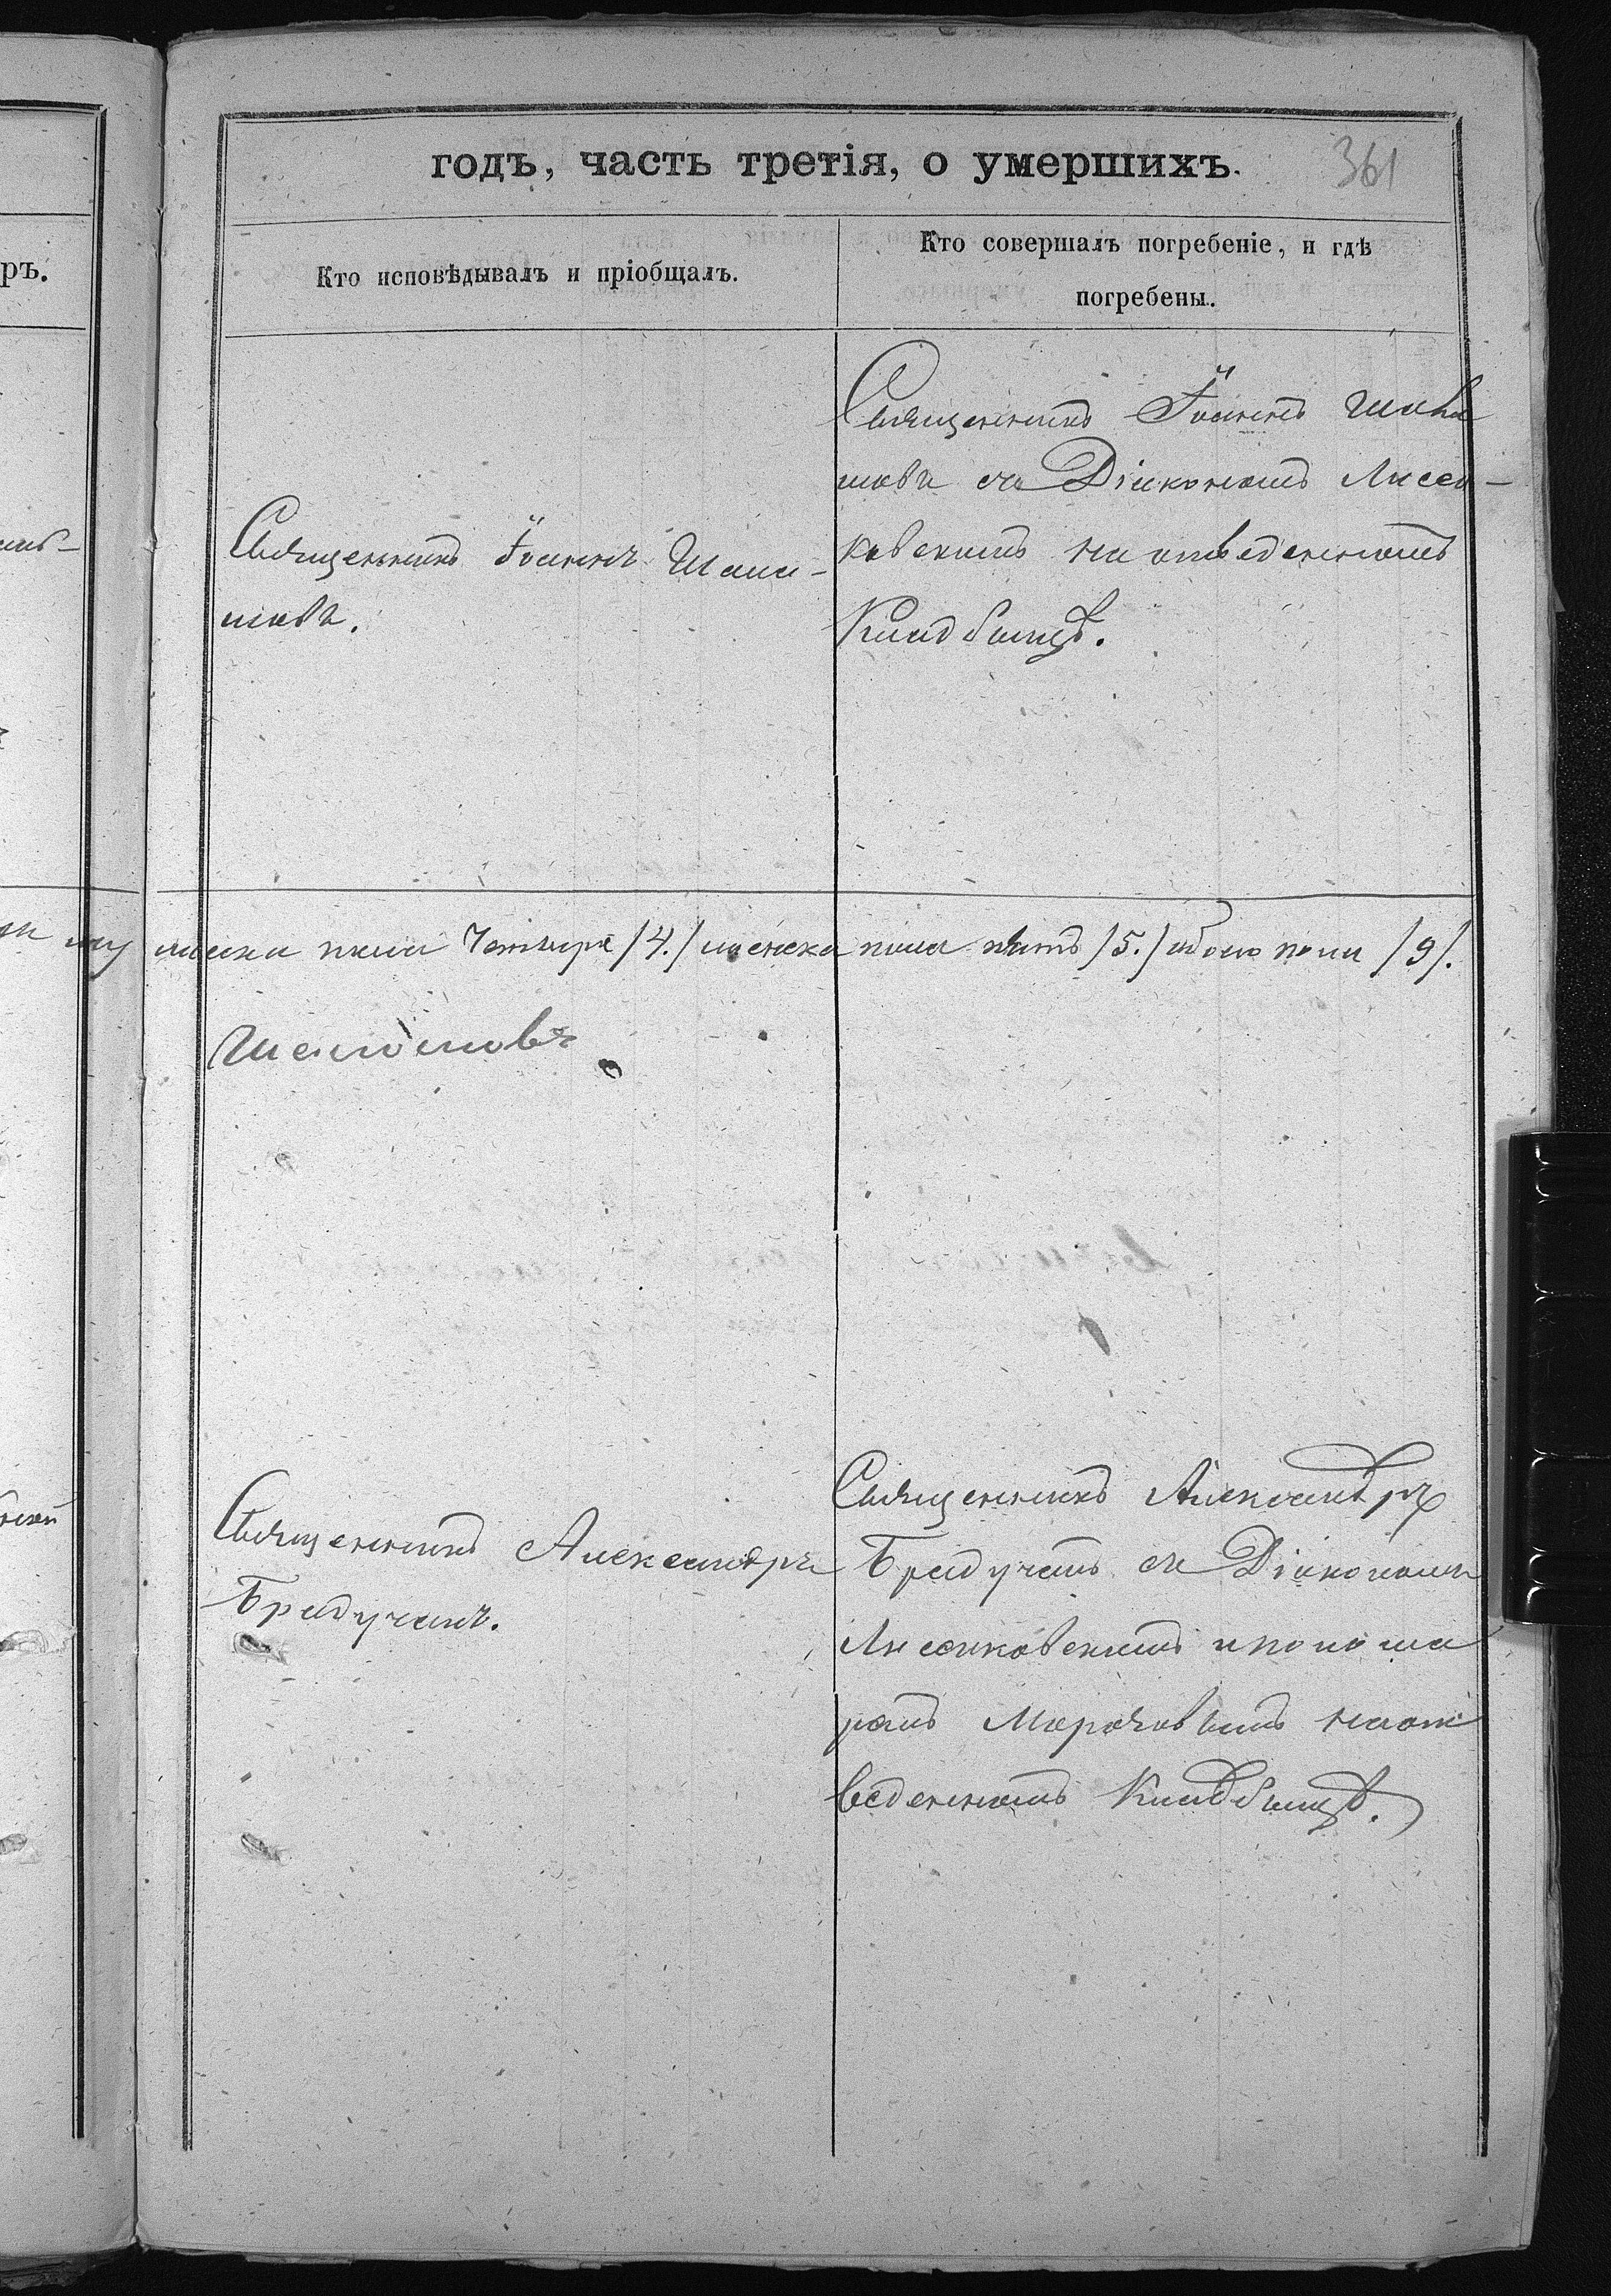 годъ, часть третія, о умершихъ.
361
ръ.
Кто исповѣдывалъ и пріобщалъ.
Кто совершалъ погребеніе, и гдѣ
погребены.
Священникъ Іоаннъ Шала-
мовъ.
Священникъ Іоаннъ Шала
мовъ съ Діакономъ Лисен-
ковскимъ на отведенномъ
Кладбищѣ.
мужска пола Четыре /4./ женска пола пять /5./ обоего пола /9/.
Шаламовъ
Священникъ Александръ
Брадучанъ.
Священникъ Александръ
Брадучанъ съ Діакономъ
Лисенковскимъ и понома
ремъ на от
веденномъ Кладбищѣ.